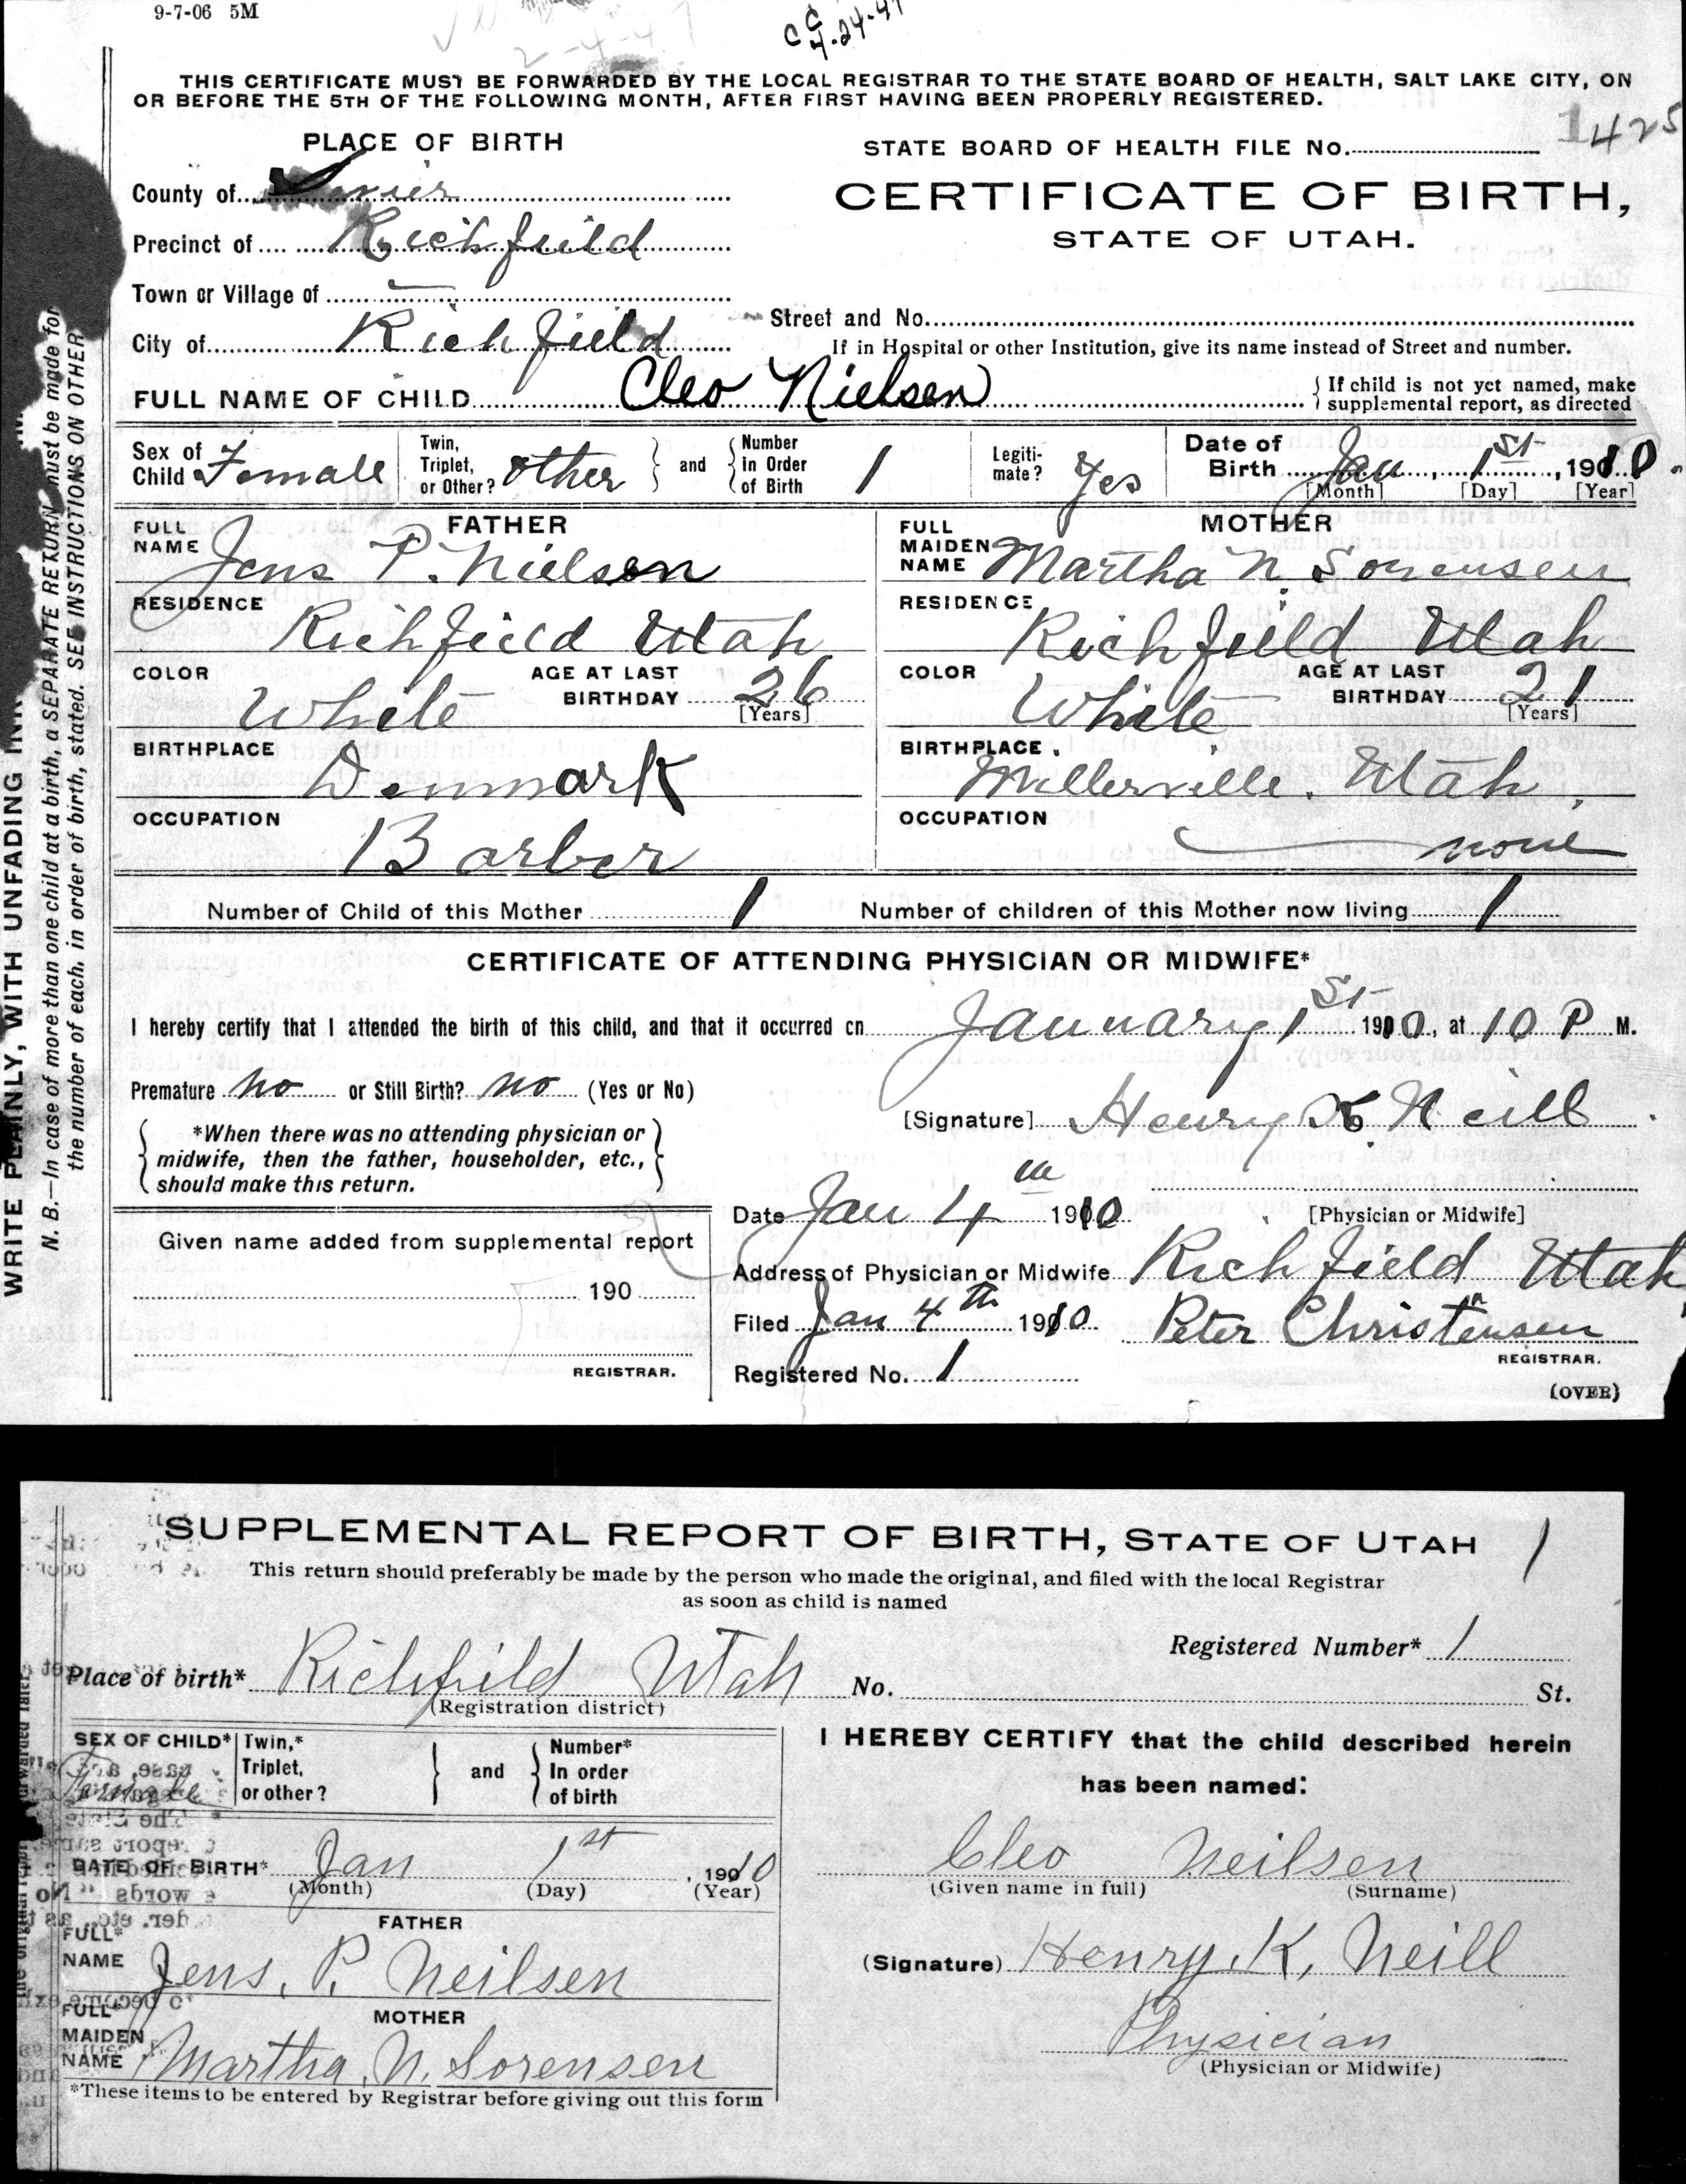 9-7-06 5M
CC
4-24-47
2-4-47
THIS CERTIFICATE MUST BE FORWARDED BY THE LOCAL REGISTRAR TO THE STATE BOARD OF HEALTH, SALT LAKE CITY, ON
OR BEFORE THE 5TH OF THE FOLLOWING MONTH, AFTER FIRST HAVING BEEN PROPERLY REGISTERED.
PLACE OF BIRTH
County of Sevier
Precinct of Richfield
Town or Village of
City of Richfield
1425
STATE BOARD OF HEALTH FILE No.
CERTIFICATE OF BIRTH,
STATE OF UTAH.
Street and No.
If in Hospital or other Institution, give its name instead of Street and number.
FULL NAME OF CHILD Cleo Nielsen { If child is not yet named, make supplemental report, as directed
Sex of Child Female
Twin, Triplet, or Other? other } and { Number in Order of Birth 1
Legiti-mate? Yes
Date of Birth Jan, 1st, 1910.
[Month] [Day] [Year]
FATHER
FULL NAME Jens P. Nielsen
RESIDENCE
Richfield Utah
COLOR White AGE AT LAST BIRTHDAY 26
[Years]
BIRTHPLACE
Denmark
OCCUPATION
Barber
MOTHER
FULL MAIDEN NAME Martha N. Sorensen
RESIDENCE
Richfield Utah
COLOR White AGE AT LAST BIRTHDAY 21
[Years]
BIRTHPLACE
Millerville. Utah
OCCUPATION
none
Number of Child of this Mother 1 Number of children of this Mother now living 1
CERTIFICATE OF ATTENDING PHYSICIAN OR MIDWIFE*
I hereby certify that I attended the birth of this child, and that it occurred on January 1st 1910, at 10 P M.
Premature no or Still Birth? no (Yes or No)
[Signature] Henry K. Neill
{ *When there was no attending physician or
midwife, then the father, householder, etc.,
should make this return. }
Date Jan 4th 1910
[Physician or Midwife]
Given name added from supplemental report
190
REGISTRAR.
Address of Physician or Midwife Richfield Utah
Filed Jan 4th 1910 Peter Christensen
REGISTRAR.
Registered No. 1
(OVER)
WRITE PLAINLY, WITH UNFADING INK
N. B.—In case of more than one child at a birth, a SEPARATE RETURN must be made for
the number of each, in order of birth, stated. SEE INSTRUCTIONS ON OTHER
SUPPLEMENTAL REPORT OF BIRTH, STATE OF UTAH 1
This return should preferably be made by the person who made the original, and filed with the local Registrar
as soon as child is named
Registered Number* 1
Place of birth* Richfield Utah No. St.
(Registration district)
SEX OF CHILD* Female
Twin,* Triplet, or other? } and { Number* In order of birth
DATE OF BIRTH* Jan 1st, 1910
(Month) (Day) (Year)
FATHER
FULL* NAME Jens. P. Neilsen
MOTHER
FULL* MAIDEN NAME Martha. N. Sorensen
*These items to be entered by Registrar before giving out this form
I HEREBY CERTIFY that the child described herein
has been named:
Cleo Neilsen
(Given name in full) (Surname)
(Signature) Henry. K. Neill
Physician
(Physician or Midwife)